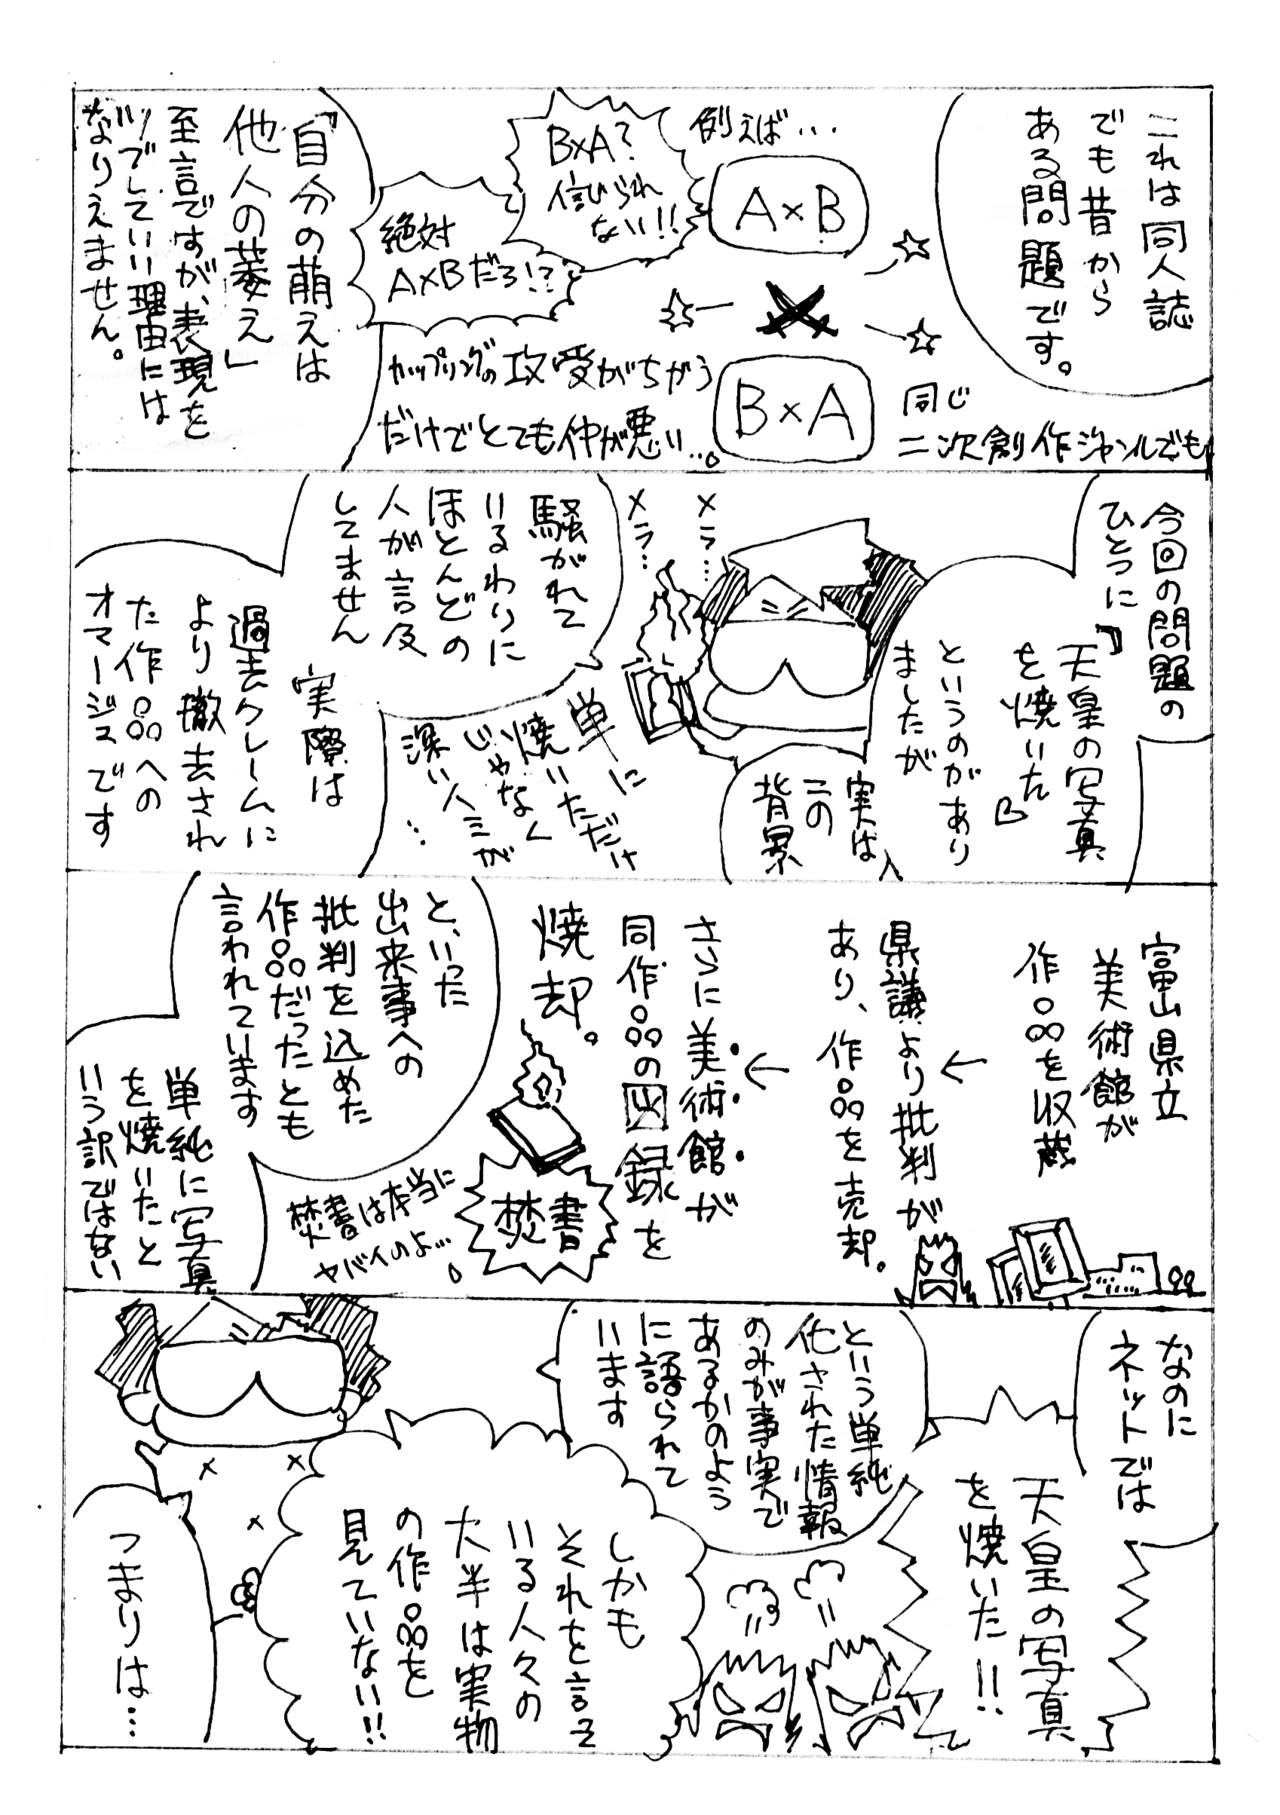 これは同人誌
でも昔から
ある問題です。
例えば…
A×B
B×A
同じ
二次創作ジャンルでも
カップリングの攻受がちがう
だけでとても仲が悪い…。
B×A?
信じられ
ない!!
絶対
A×Bだろ!?
『自分の萌えは
他人の萎え」
至言ですが、表現を
どうでしていい理由には
なりえません。
今回の問題の
ひとつに
『天皇の写真
を焼いた』
というのがあり
ましたが
実は
この
背景
メラ…
メラ…
騒がれて
いるわりに
ほとんどの
人が言及
してません
単に
焼いただけ
じゃなく
深い人ミが
…
実際は
過去クレームに
より撤去され
た作品への
オマージュです
富山県立
美術館が
作品を収蔵
←
県議より批判が
あり、作品を売却。
←
さらに美術館が
同作品の図録を
焼却。
焚書
焚書は本当に
ヤバイのよ…。
と、いった
出来事への
批判を込めた
作品だったとも
言われています
単純に写真
を焼いたと
いう訳ではない
なのに
ネットでは
天皇の写真
を焼いた!!
という単純
化された情報
のみが事実で
あるかのよう
に語られて
います
しかも
それを言って
いる人々の
大半は実物
の作品を
見ていない!!
つまりは…